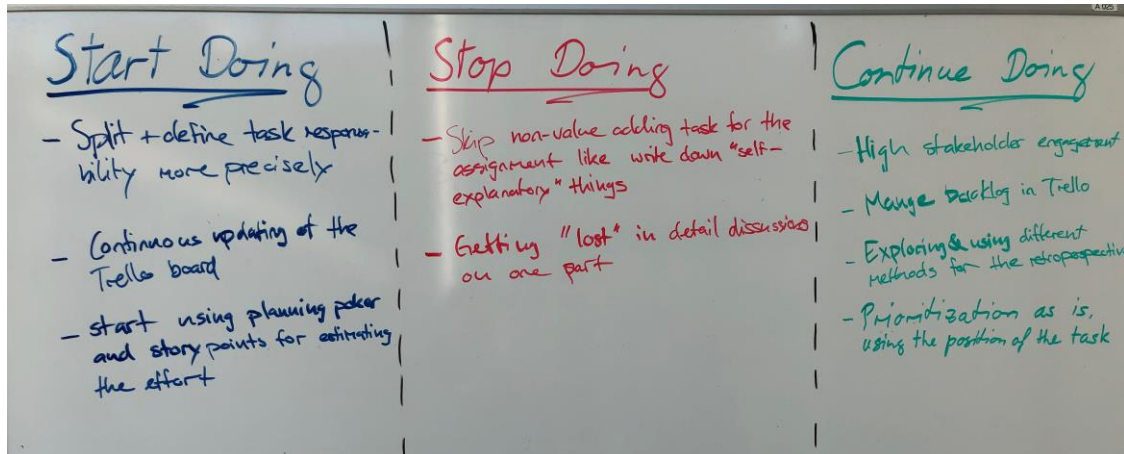 A 025
Start Doing
- Split + define task responsi-
bility more precisely
- Continuous updating of the
Trello board
- start using planning poker
and story points for estimating
the effort
Stop Doing
- Skip non-value adding task for the
assignment like write down "self-
explanatory" things
- Getting "lost" in detail discussions
on one part
Continue Doing
- High stakeholder engagement
- Mange backlog in Trello
- Exploring & using different
methods for the retropespective
- Prioritization as is,
using the position of the task